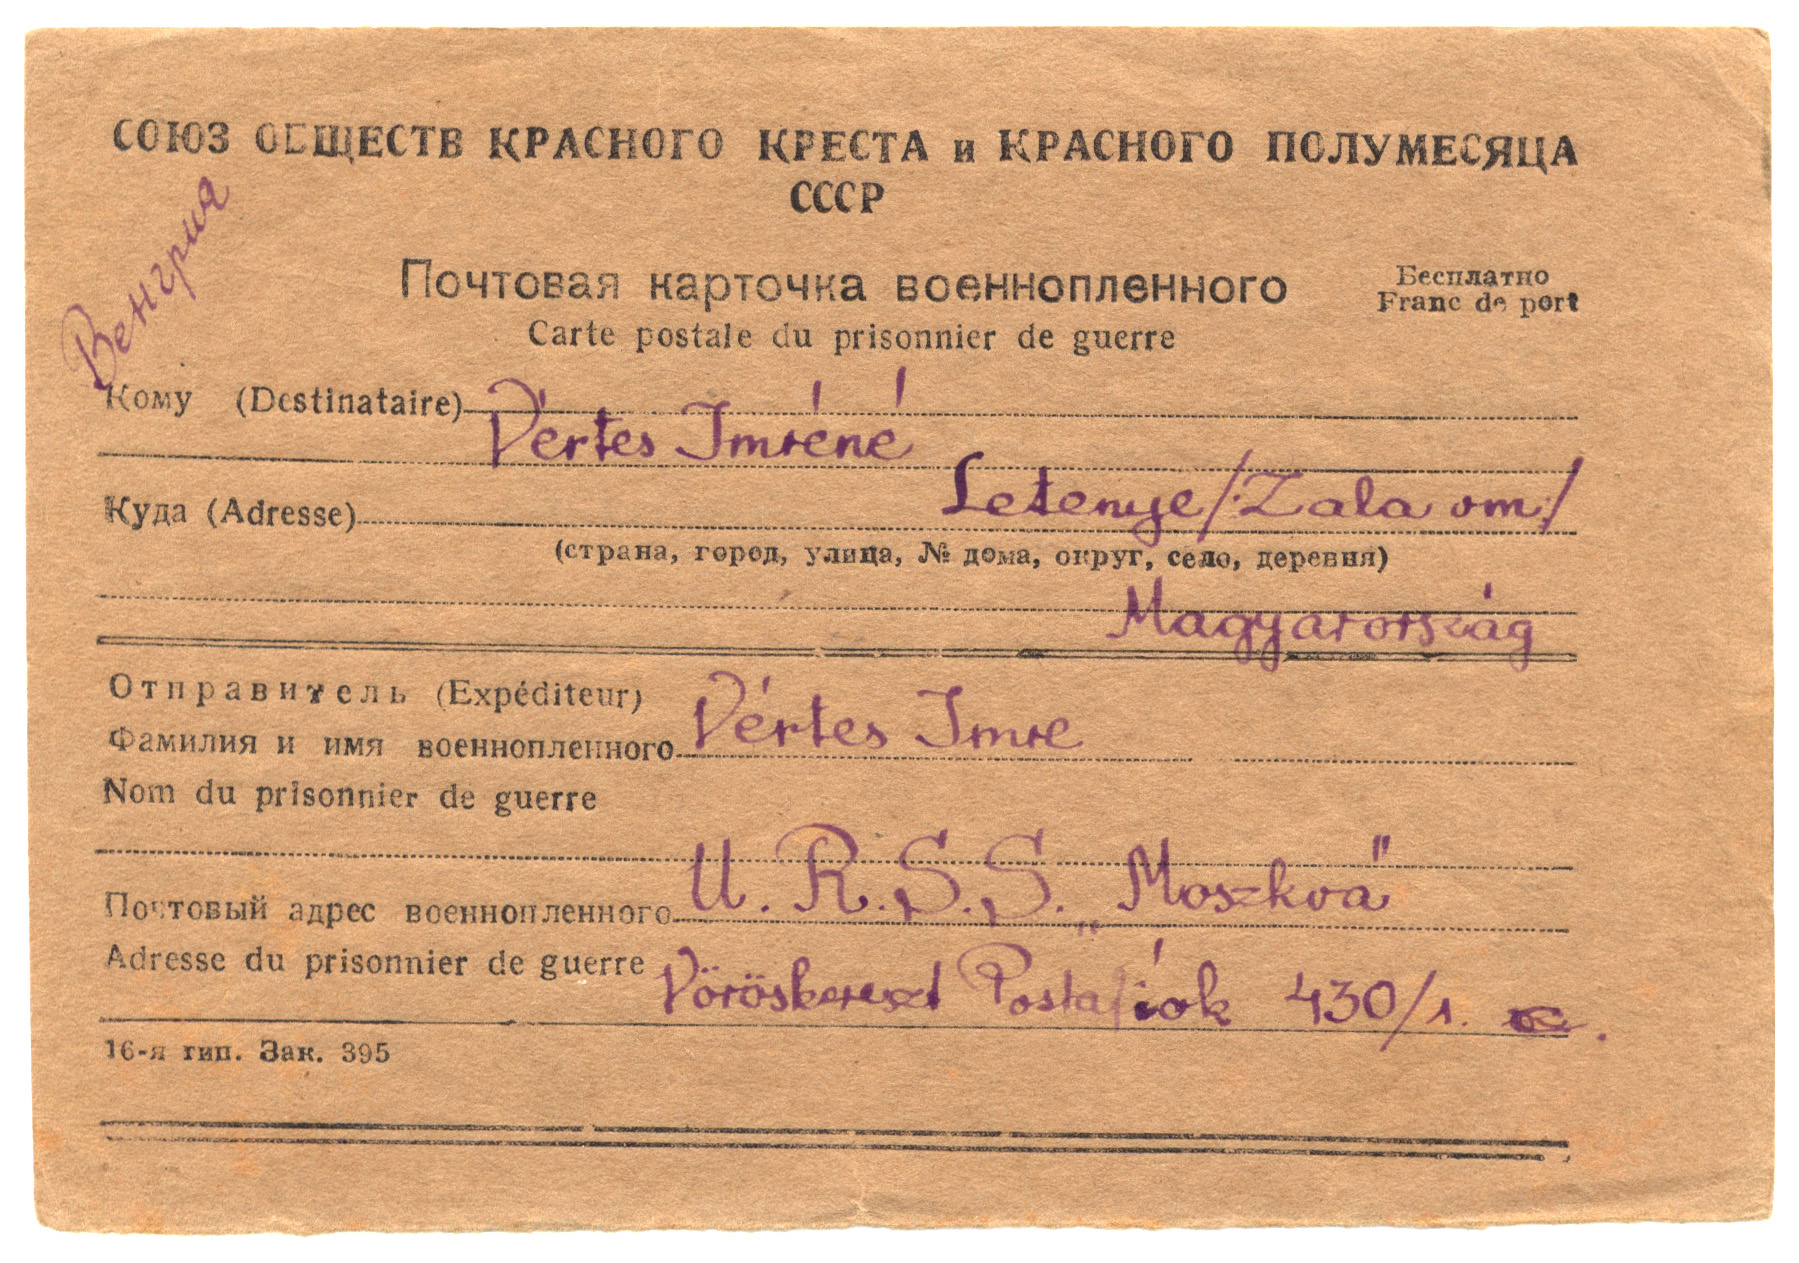 СОЮЗ ОБЩЕСТВ КРАСНОГО КРЕСТА и КРАСНОГО ПОЛУМЕСЯЦА
СССР
Венгрия
Почтовая карточка военнопленного
Бесплатно
Franc de port
Carte postale du prisonnier de guerre
Кому (Destinataire)
Vértes Imréné
Куда (Adresse) Letenye/Zala vm/
(страна, город, улица, № дома, округ, село, деревня)
Magyarország
Отправитель (Expéditeur)
Фамилия и имя военнопленного Vértes Imre
Nom du prisonnier de guerre
Почтовый адрес военнопленного U.R.S.S. „Moszkva"
Adresse du prisonnier de guerre Vöröskereszt Postafiók 430/1.
16-я тип. Зак. 395